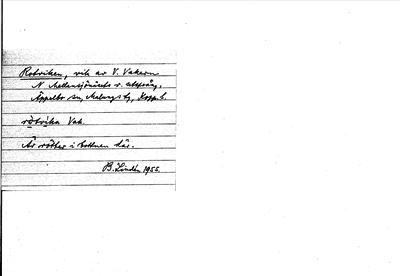 Rotviken, vik av V. Vakern
N Mellansjönäset v. utsprång,
Äppelbo sn, Malungs tg, Kopp. l.
rötvika Vak.
Är rötter i bottnen där.
B. Lindén 1955.